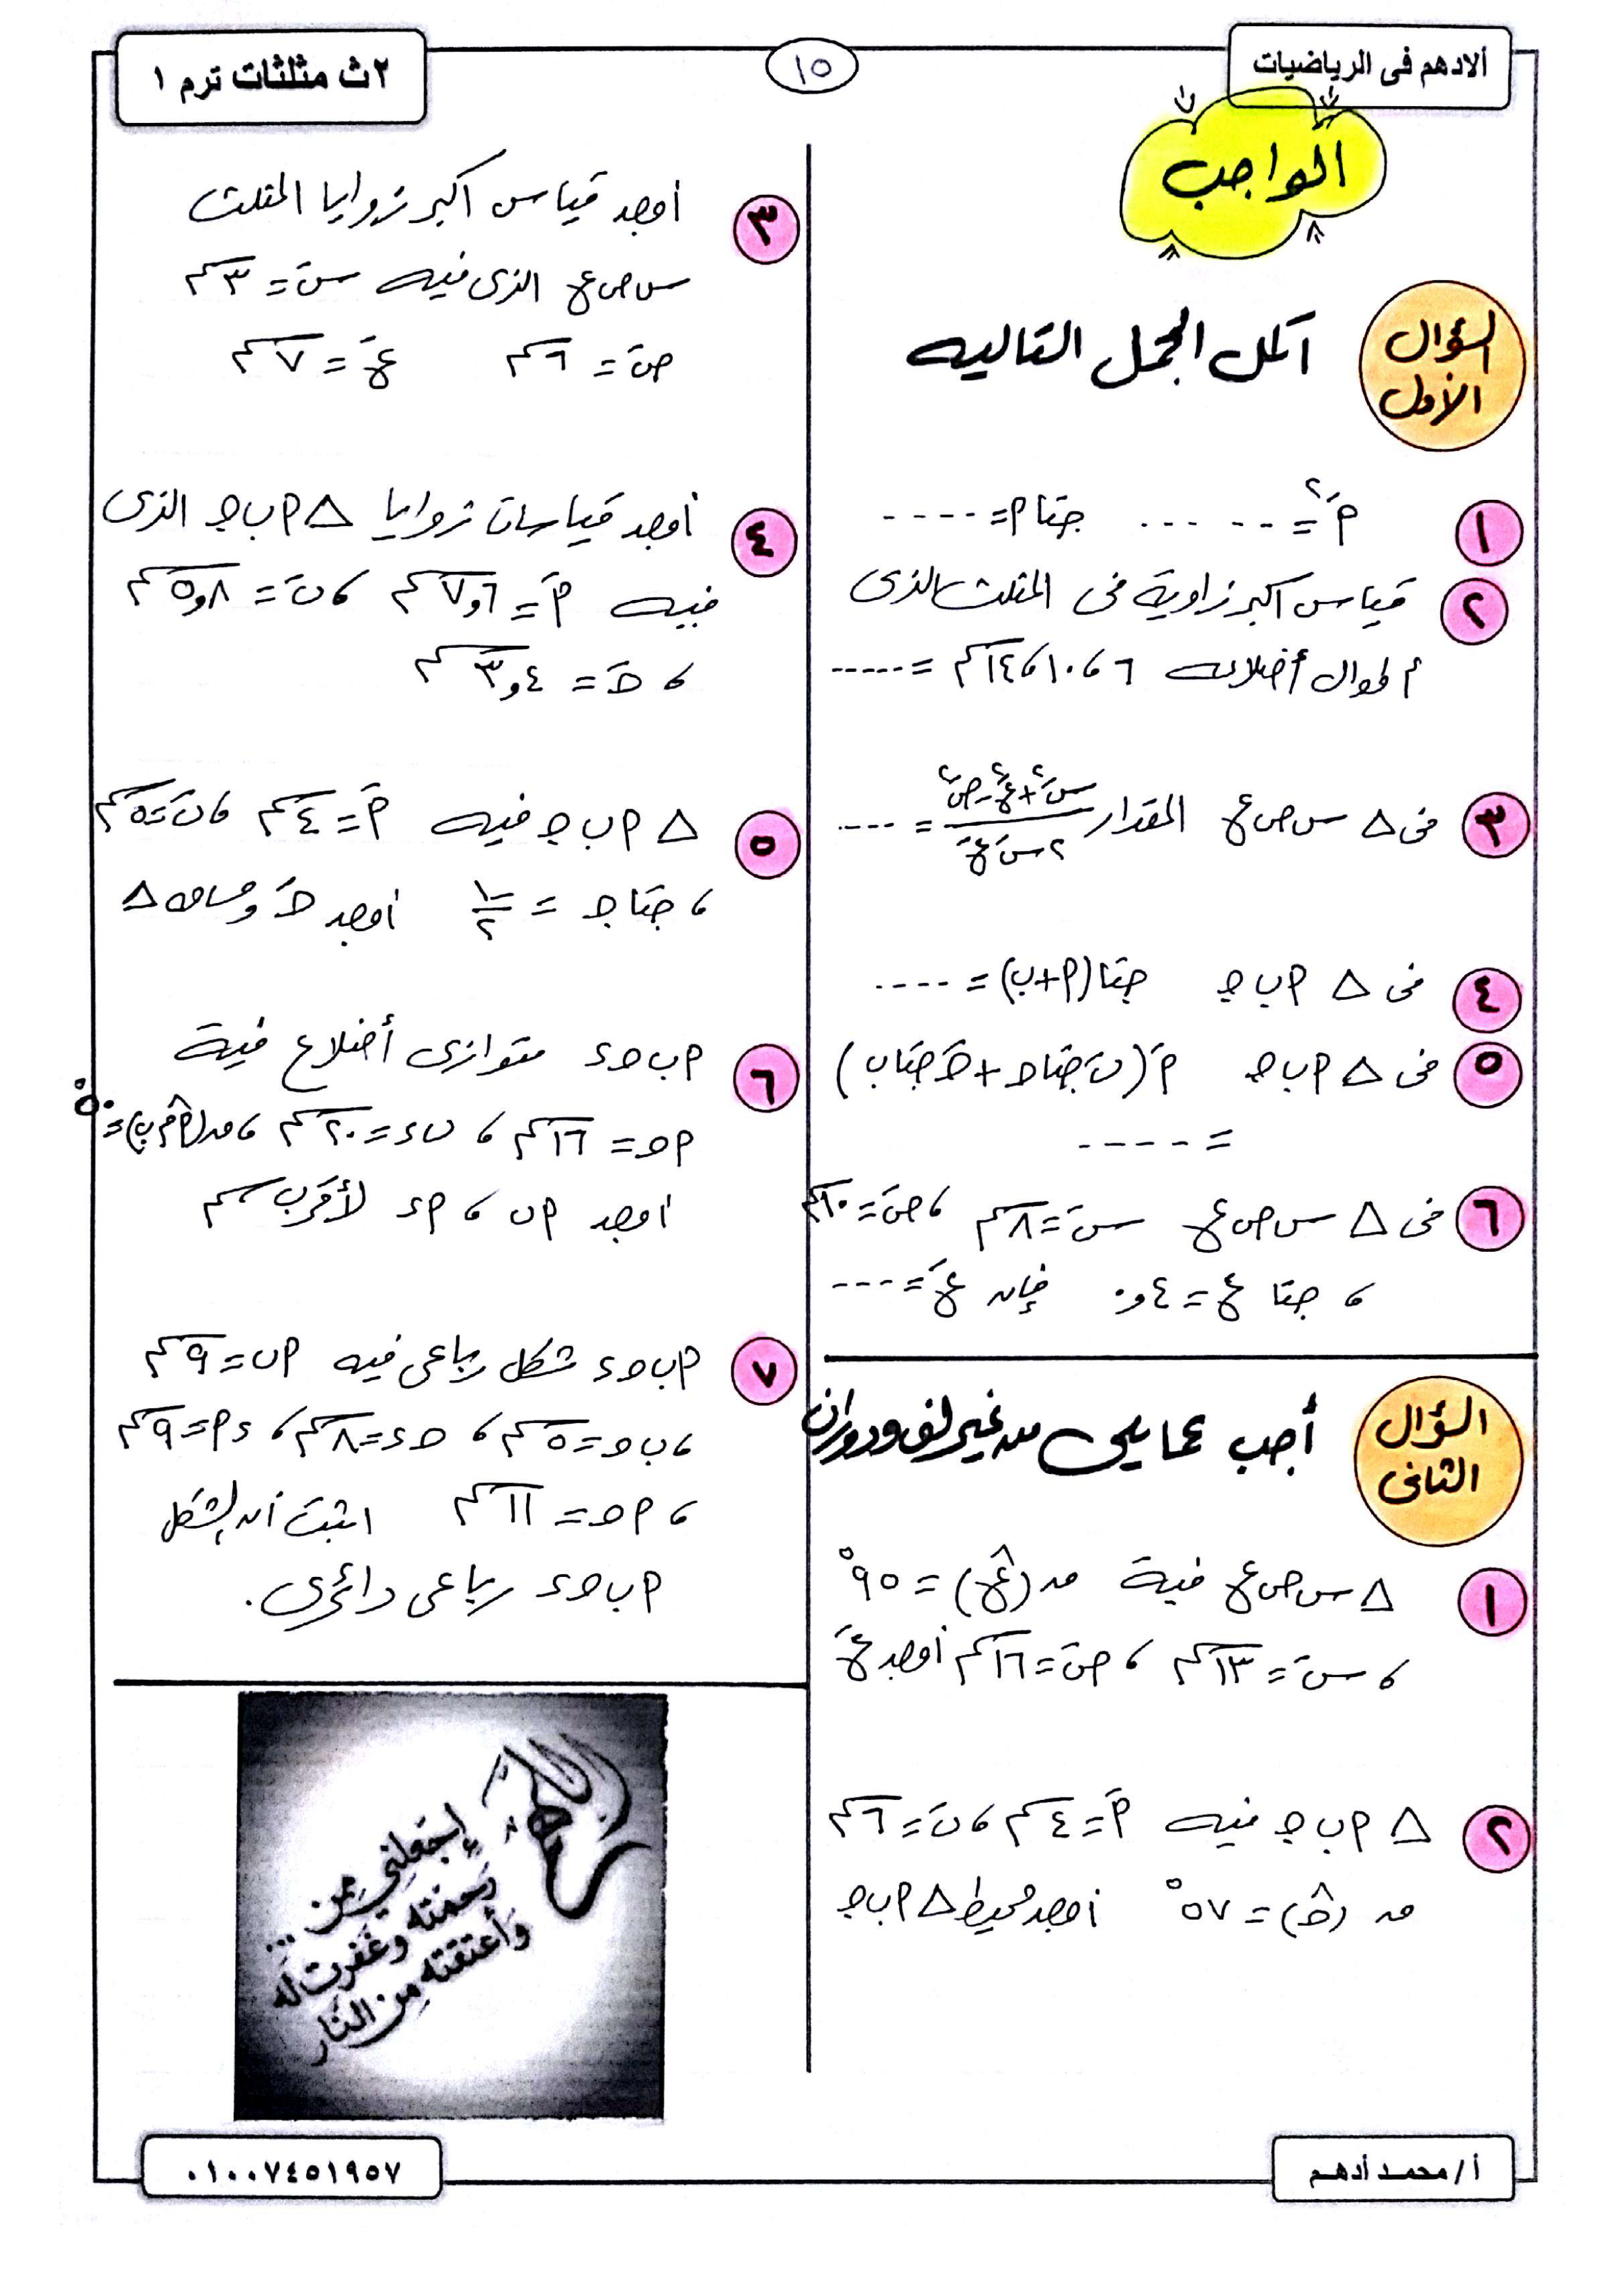 الادهم فى الرياضيات
١٥
٢ث مثلثات ترم ١
الواجب
السؤال الأول
أكمل الجمل التاليه
١ أَ٢ = ...... جتا أ = ....
٢ قياس اكبر زاوية فى المثلث الذى
أطوال أضلاعه ٦ ، ١٠ ، ١٤ سم = .....
٣ فى △ س ص ع المقدار (سَ٢ + عَ٢ - صَ٢) / (٢ سَ عَ) = ....
٤ فى △ أ ب ج جتا (أ + ب) = ....
٥ فى △ أ ب ج أَ (بَ جتا ج + جَ جتا ب)
= ....
٦ فى △ س ص ع سَ = ٨ سم ، صَ = ١٠ سم
، جتا ع = ٤و٠ فإن عَ = ....
السؤال الثانى
أجب عما يلى من غير لف ودوران
١ △ س ص ع فية ق(ع̂) = ٩٥°
، سَ = ١٣ سم ، صَ = ١٦ سم أوجد عَ
٢ △ أ ب ج فيه أَ = ٤ سم ، بَ = ٦ سم
ق (ج̂) = ٥٧° أوجد محيط △ أ ب ج
٣ أوجد قياس اكبر زوايا المثلث
س ص ع الذى فيه سَ = ٣ سم
صَ = ٦ سم عَ = ٧ سم
٤ أوجد قياسات زوايا △ أ ب ج الذى
فيه أَ = ٦و٧ سم ، بَ = ٨و٥ سم
، جَ = ٤و٣ سم
٥ △ أ ب ج فيه أَ = ٤ سم ، بَ = ٥ سم
، جتا ج = ١/٢ أوجد جَ ومساحه △
٦ أ ب ج د متوازى أضلاع فية
أ ج = ١٦ سم ، ب د = ٢٠ سم ، ق(أ م̂ ب) = ٥٠°
اوجد أ ب ، أ د لأقرب سم
٧ أ ب ج د شكل رباعى فيه أ ب = ٩ سم
، ب ج = ٥ سم ، ج د = ٨ سم ، د أ = ٩ سم
، أ ج = ١١ سم اثبت أن الشكل
أ ب ج د رباعى دائرى.
اللهم
إجعلني ممن ...
رحمته وغفرت له
وأعتقته من النار
أ / محمد أدهم
٠١٠٠٧٤٥١٩٥٧